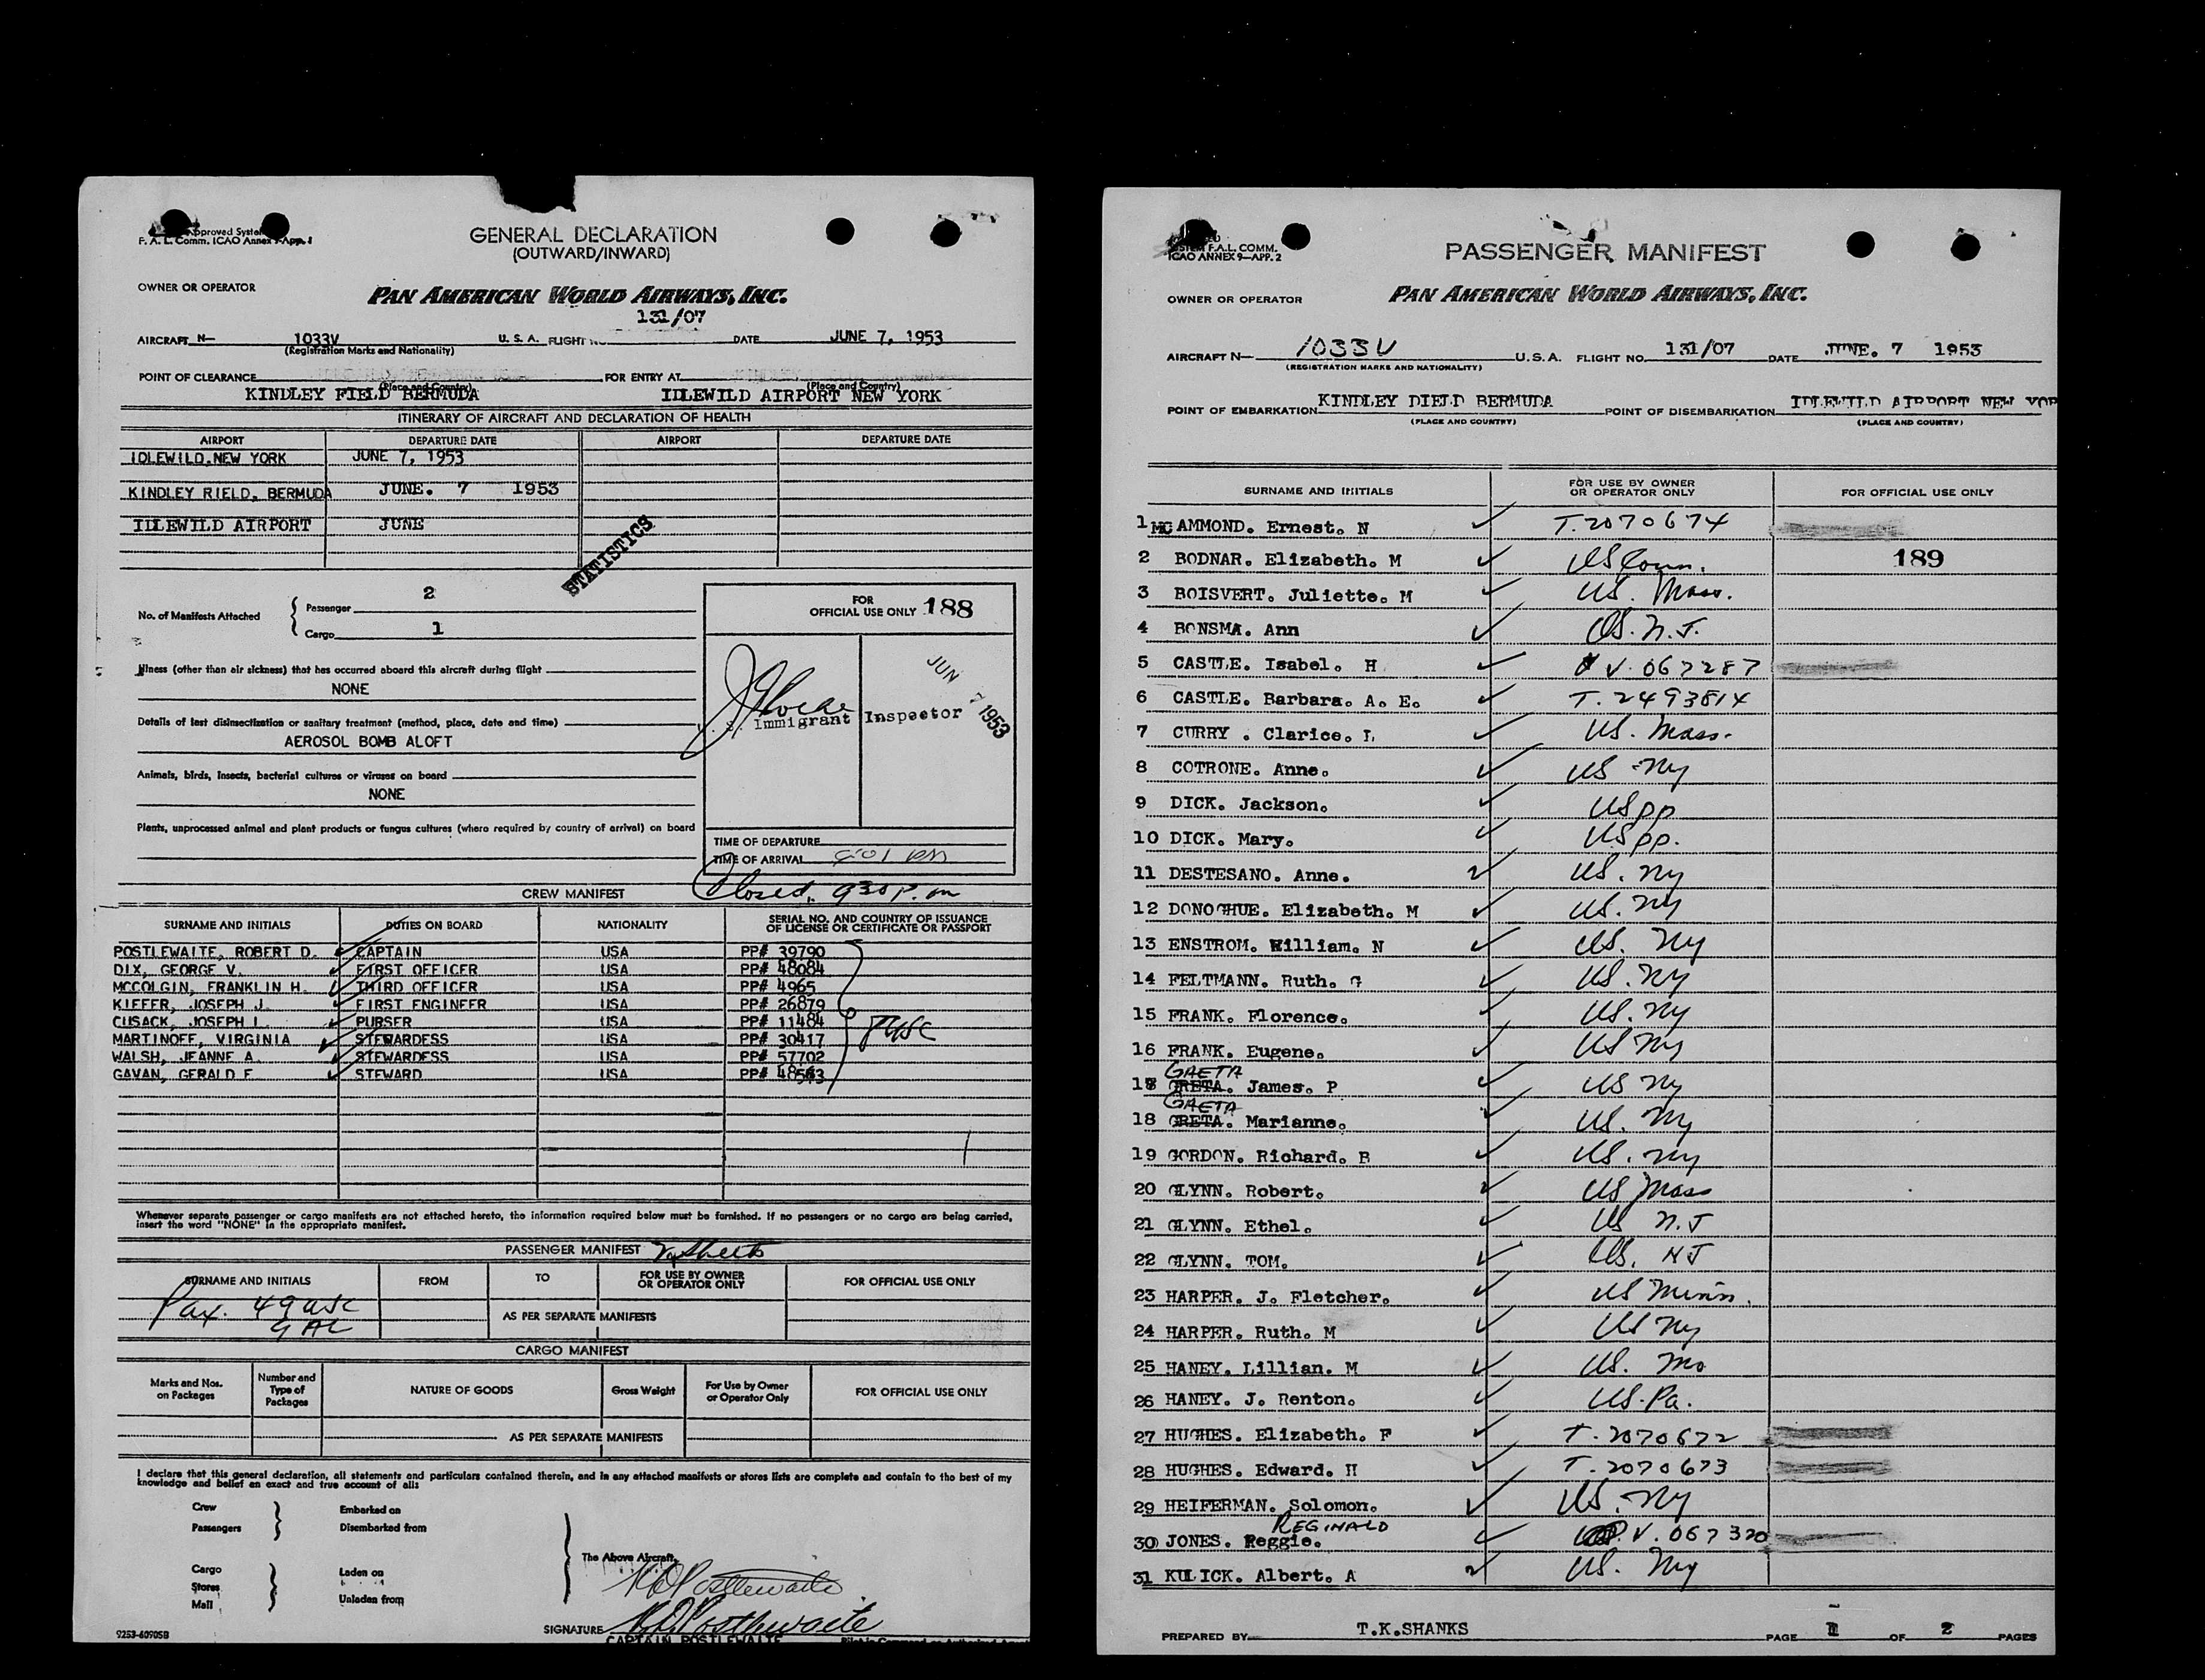 Approved System
F. A. L. Comm. ICAO Annex 9-App. 1
GENERAL DECLARATION
(OUTWARD/INWARD)
OWNER OR OPERATOR
PAN AMERICAN WORLD AIRWAYS, INC.
131/07
AIRCRAFT N— 1033V U. S. A. FLIGHT NO. DATE JUNE 7, 1953
(Registration Marks and Nationality)
POINT OF CLEARANCE FOR ENTRY AT
(Place and Country) (Place and Country)
KINDLEY FIELD BERMUDA IDLEWILD AIRPORT NEW YORK
ITINERARY OF AIRCRAFT AND DECLARATION OF HEALTH
AIRPORT DEPARTURE DATE AIRPORT DEPARTURE DATE
IDLEWILD,NEW YORK JUNE 7, 1953
KINDLEY RIELD, BERMUDA JUNE. 7 1953
IDLEWILD AIRPORT JUNE
STATISTICS
No. of Manifests Attached { Passenger 2
Cargo 1
FOR
OFFICIAL USE ONLY 188
Illness (other than air sickness) that has occurred aboard this aircraft during flight
NONE
JUN 7 1953
Immigrant Inspector
Details of last disinsectization or sanitary treatment (method, place, date and time)
AEROSOL BOMB ALOFT
Animals, birds, insects, bacterial cultures or viruses on board
NONE
Plants, unprocessed animal and plant products or fungus cultures (where required by country of arrival) on board
TIME OF DEPARTURE
TIME OF ARRIVAL
Closed. 930 P.m
CREW MANIFEST
SURNAME AND INITIALS DUTIES ON BOARD NATIONALITY SERIAL NO. AND COUNTRY OF ISSUANCE
OF LICENSE OR CERTIFICATE OR PASSPORT
POSTLEWAITE, ROBERT D. CAPTAIN USA PP# 39790
DIX, GEORGE V. FIRST OFFICER USA PP# 48084
MCCOLGIN, FRANKLIN H. THIRD OFFICER USA PP# 4965
KIEFER, JOSEPH J. FIRST ENGINEER USA PP# 26879
CUSACK, JOSEPH L. PURSER USA PP# 11484
MARTINOFF, VIRGINIA STEWARDESS USA PP# 30417
WALSH, JEANNE A. STEWARDESS USA PP# 57702
GAVAN, GERALD F. STEWARD USA PP#
Whenever separate passenger or cargo manifests are not attached hereto, the information required below must be furnished. If no passengers or no cargo are being carried,
insert the word "NONE" in the appropriate manifest.
PASSENGER MANIFEST 2 Sheets
SURNAME AND INITIALS FROM TO FOR USE BY OWNER
OR OPERATOR ONLY FOR OFFICIAL USE ONLY
Pax. 49 USC
9 AL
AS PER SEPARATE MANIFESTS
CARGO MANIFEST
Marks and Nos.
on Packages Number and
Type of
Packages NATURE OF GOODS Gross Weight For Use by Owner
or Operator Only FOR OFFICIAL USE ONLY
AS PER SEPARATE MANIFESTS
I declare that this general declaration, all statements and particulars contained therein, and in any attached manifests or stores lists are complete and contain to the best of my
knowledge and belief an exact and true account of all:
Crew Embarked on
Passengers Disembarked from
The Above Aircraft.
Cargo Laden on
Stores
Mail Unladen from
R D Postlewaite
SIGNATURE R D Postlewaite
CAPTAIN POSTLEWAITE
9253-60905B
SYSTEM F.A.L. COMM.
ICAO ANNEX 9—APP. 2
PASSENGER MANIFEST
OWNER OR OPERATOR
PAN AMERICAN WORLD AIRWAYS, INC.
AIRCRAFT N— 1033V U.S.A. FLIGHT NO. 131/07 DATE JUNE. 7 1953
(REGISTRATION MARKS AND NATIONALITY)
POINT OF EMBARKATION KINDLEY DIELD BERMUDA POINT OF DISEMBARKATION IDLEWILD AIRPORT NEW YOR
(PLACE AND COUNTRY) (PLACE AND COUNTRY)
SURNAME AND INITIALS FOR USE BY OWNER
OR OPERATOR ONLY FOR OFFICIAL USE ONLY
1 MC AMMOND. Ernest. N T.2070674
2 BODNAR. Elizabeth. M US Conn. 189
3 BOISVERT. Juliette. M US. Mass.
4 BONSMA. Ann US. N.J.
5 CASTLE. Isabel. H V.067287
6 CASTLE. Barbara. A. E. T.2493814
7 CURRY . Clarice. L US. Mass.
8 COTRONE. Anne. US NY
9 DICK. Jackson. US pp
10 DICK. Mary. US pp.
11 DESTESANO. Anne. US. NY
12 DONOGHUE. Elizabeth. M US. NY
13 ENSTROM. William. N US. NY
14 FELTMANN. Ruth. G US. NY
15 FRANK. Florence. US. NY
16 FRANK. Eugene. US NY
GAETA
17 GRETA. James. P US NY
GAETA
18 GRETA. Marianne. US. NY
19 GORDON. Richard. B US. NY
20 GLYNN. Robert. US Mass
21 GLYNN. Ethel. US N.J
22 GLYNN. TOM. US. NJ
23 HARPER. J. Fletcher. US Minn.
24 HARPER. Ruth. M US NY
25 HANEY. Lillian. M US. Mo
26 HANEY. J. Renton. US. Pa.
27 HUGHES. Elizabeth. F T.2070672
28 HUGHES. Edward. H T.2070673
29 HEIFERMAN. Solomon. US. NY
REGINALD
30 JONES. Reggie. V.067320
31 KULICK. Albert. A US. NY
PREPARED BY T.K.SHANKS PAGE 1 OF 2 PAGES